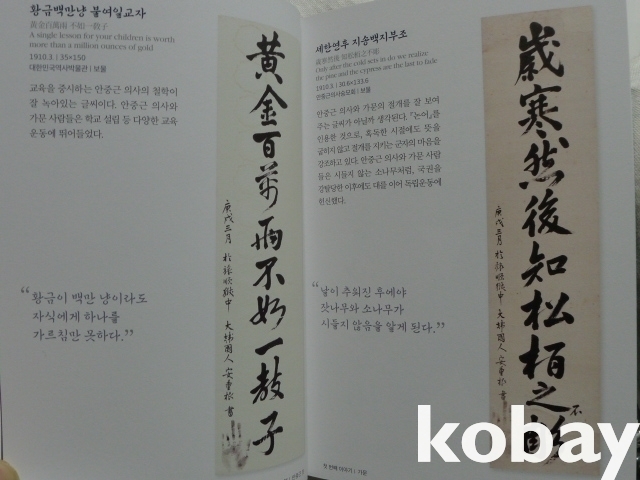 황금백만냥 불여일교자
黃金百萬兩 不如一敎子
A single lesson for your children is worth
more than a million ounces of gold
1910.3 | 35×150
대한민국역사박물관 | 보물
교육을 중시하는 안중근 의사의 철학이
잘 녹아있는 글씨이다. 안중근 의사와
가문 사람들은 학교 설립 등 다양한 교육
운동에 뛰어들었다.
“황금이 백만 냥이라도
자식에게 하나를
가르침만 못하다.”
黃金百萬兩不如一敎子
庚戌三月 於旅順獄中 大韓國人 安重根 書
세한연후 지송백지부조
歲寒然後 知松栢之不彫
Only after the cold sets in do we realize
the pine and the cypress are the last to fade
1910.3 | 30.6×133.6
안중근의사숭모회 | 보물
안중근 의사와 가문의 절개를 잘 보여
주는 글씨가 아닐까 생각된다. 『논어』를
인용한 것으로, 혹독한 시절에도 뜻을
굽히지 않고 절개를 지키는 군자의 마음을
강조하고 있다. 안중근 의사와 가문 사람
들은 시들지 않는 소나무처럼, 국권을
강탈당한 이후에도 대를 이어 독립운동에
헌신했다.
“날이 추워진 후에야
잣나무와 소나무가
시들지 않음을 알게 된다.”
歲寒然後知松栢之不
庚戌三月 於旅順獄中 大韓國人 安重根 書
첫 번째 이야기 / 가문
kobay